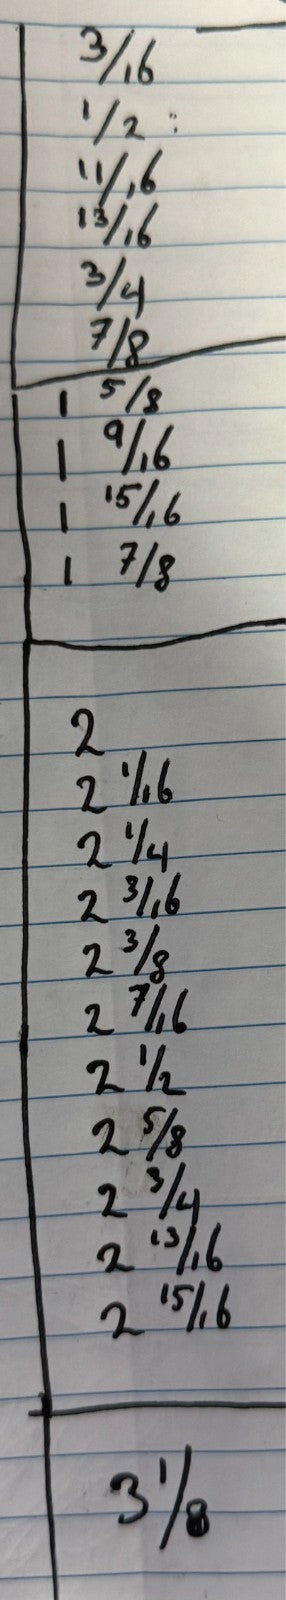 3/16
1/2 :
11/16
13/16
3/4
7/8
1 5/8
1 9/16
1 15/16
1 7/8
2
2 1/16
2 1/4
2 3/16
2 3/8
2 7/16
2 1/2
2 5/8
2 3/4
2 13/16
2 15/16
3 1/8